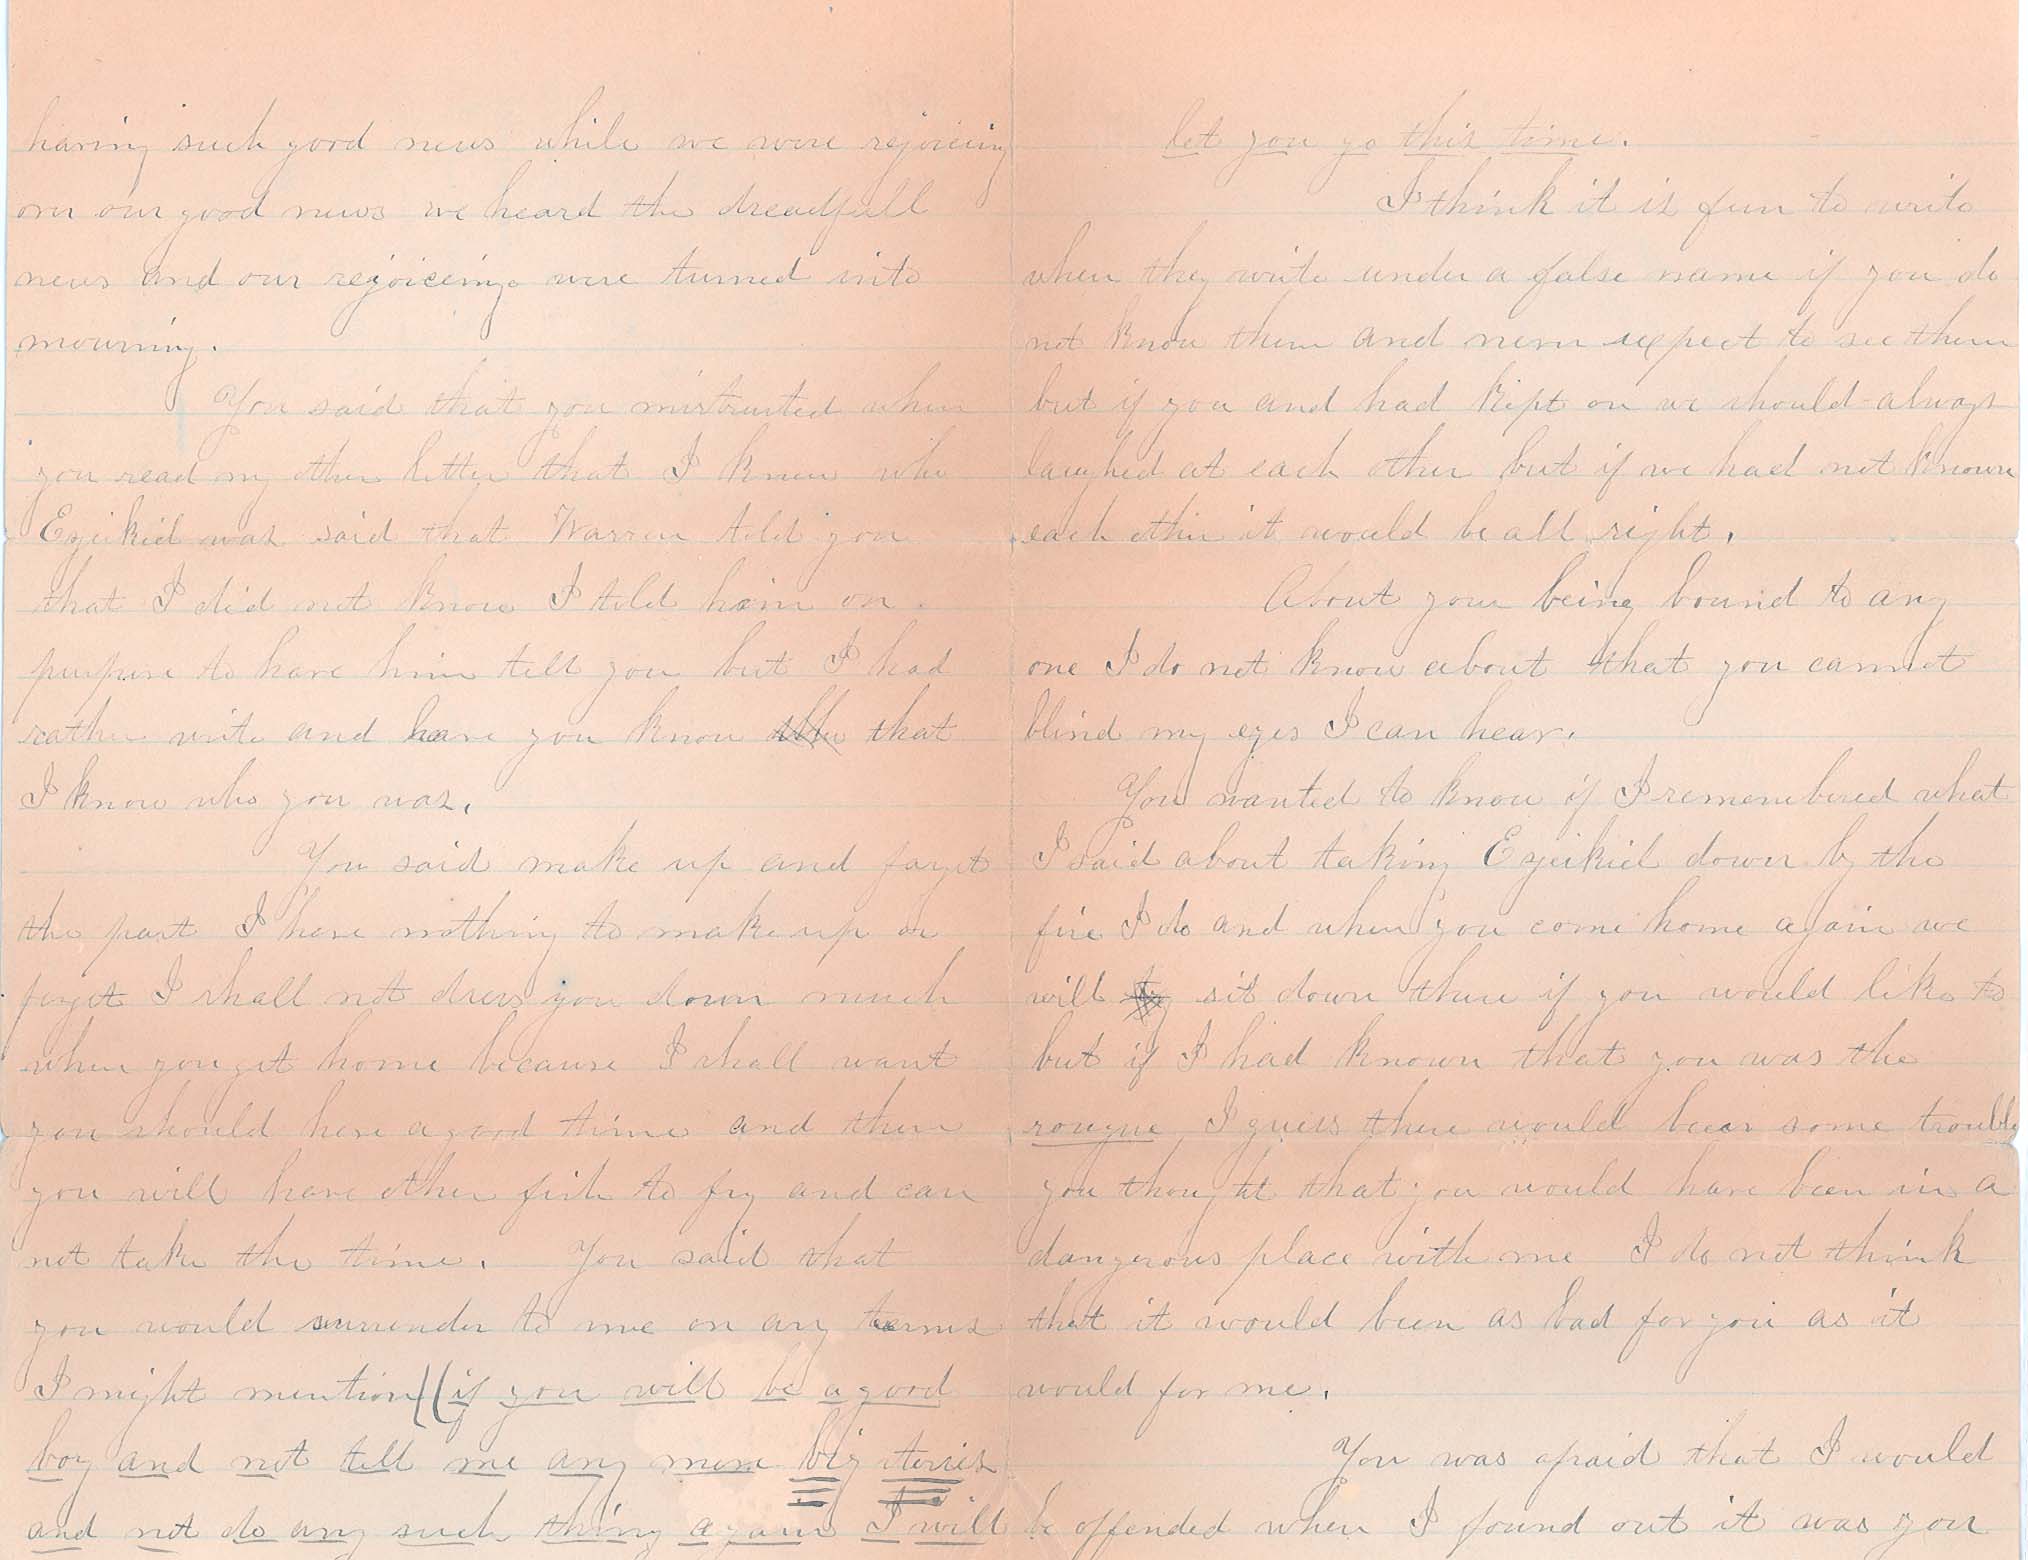 having such good news while we were rejoicing
over our good news we heard the dreadfull
news and our rejoiceing were turned into
mourning.
You said that you mistrusted when
you read my other letter that I knew who
Ezeikiel was said that Warren told you
that I did not know I told him on
purpose to have him tell you but I had
rather write and have you know that
I know who you was.
You said make up and forget
the past I have nothing to make up or
forget I shall not dress you down much
when you get home because I shall want
you should have a good time and then
you will have other fish to fry and can
not take the time. You said that
you would surrender to me on any terms
I might mention ((if you will be a good
boy and not tell me any more big stories
and not do any such thing again I will
let you go this time.
I think it is fun to write
when they write under a false name if you do
not know them and never expect to see them
but if you and had kept on we should always
laughed at each other but if we had not known
each other it would be all right.
About your being bound to any
one I do not know about that you cannot
blind my eyes I can hear.
You wanted to know if I remembered what
I said about taking Ezeikiel down by the
fire I do and when you come home again we
will sit down there if you would like to
but if I had known that you was the
rougue I guess there would been some trouble
you thought that you would have been in a
dangerous place with me I do not think
that it would been as bad for you as it
would for me.
You was afraid that I would
be offended when I found out it was you